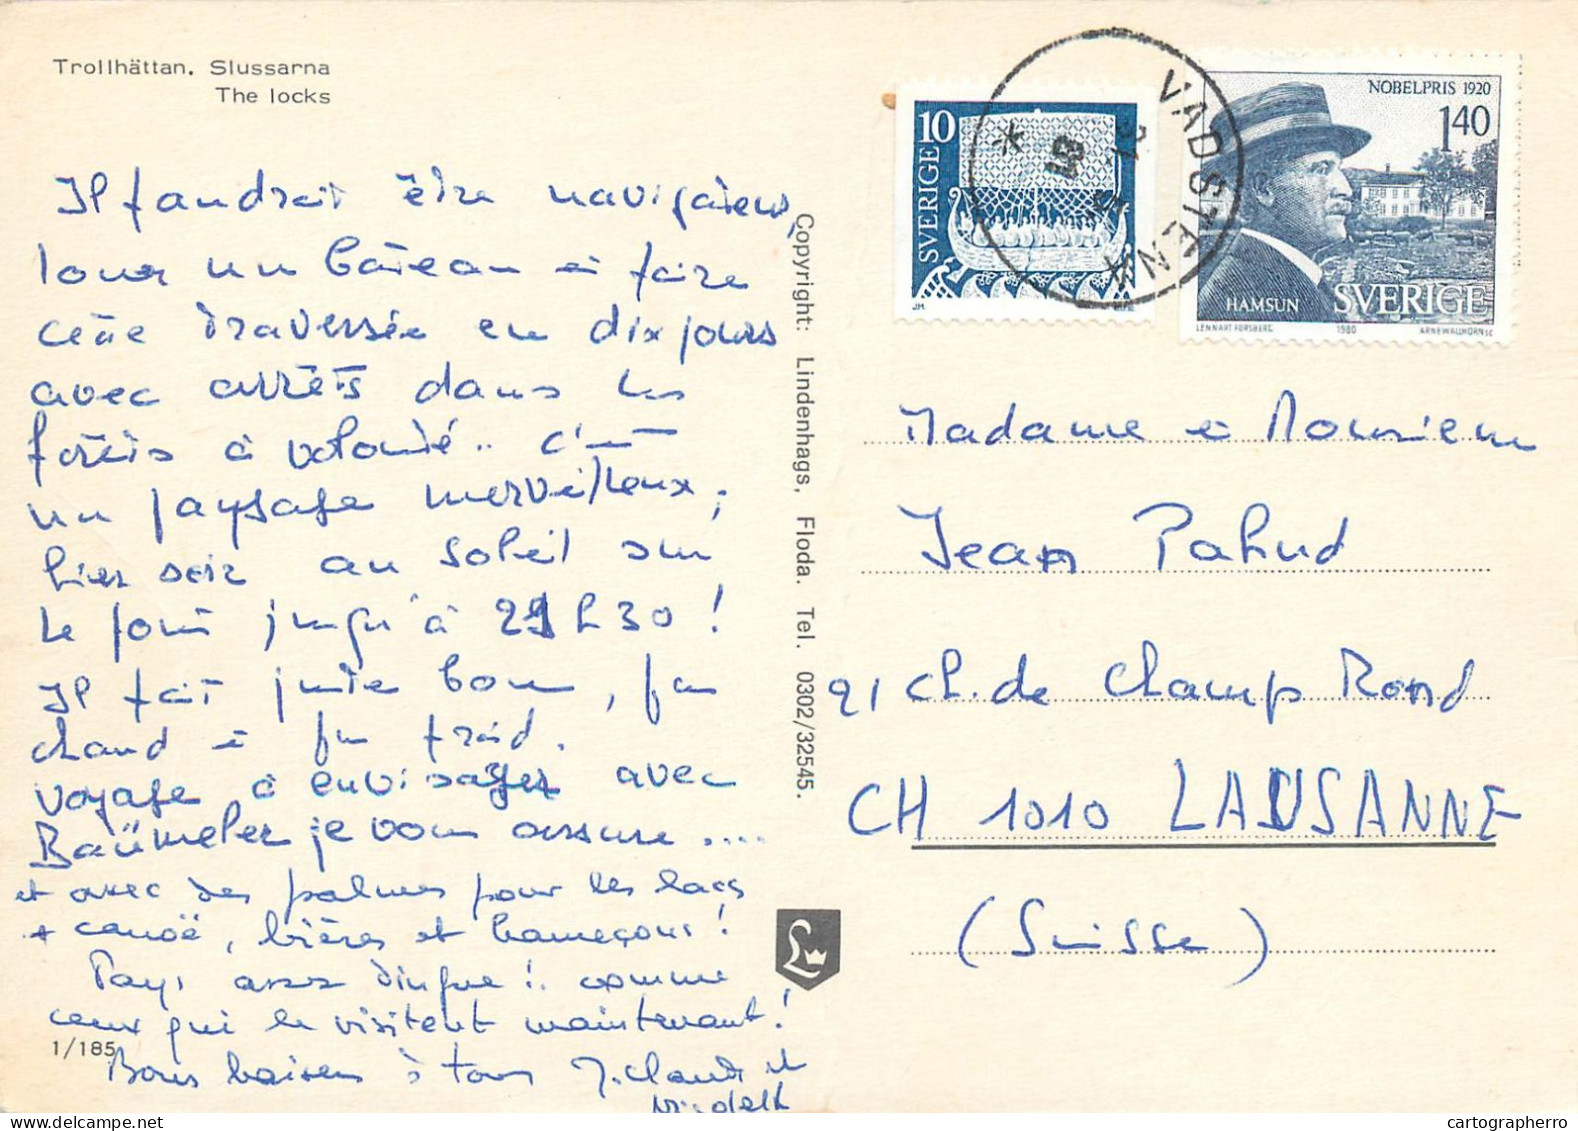 Trollhättan. Slussarna
The locks
Il faudrait être navigateur,
louer un bâteau et faire
cette traversée en dix jours
avec arrêts dans les
forêts à volonté.. c'est
un paysage merveilleux,
hier soir au soleil sur
le pont jusqu'à 21 h 30 !
Il fait juste bon, pas
chaud et pas froid.
voyage à envisager avec
Baümeler je vous assure ....
et avec des palmes pour les lacs
+ canoë, bières et hameçons !
Pays assez dingue !. comme
ceux qui le visitent maintenant !
1/185
Bons baisers à tous J. Claude et
Copyright: Lindenhags, Floda. Tel. 0302/32545.
L
10
SVERIGE
JM
VADSTENA
NOBELPRIS 1920
1.40
HAMSUN SVERIGE
LENNART FORSBERG 1980 ARNE WALLHORN SC
Madame et Monsieur
Jean Pahud
21 ch. de Champ Rond
CH 1010 LAUSANNE
(Suisse)
cartographerro